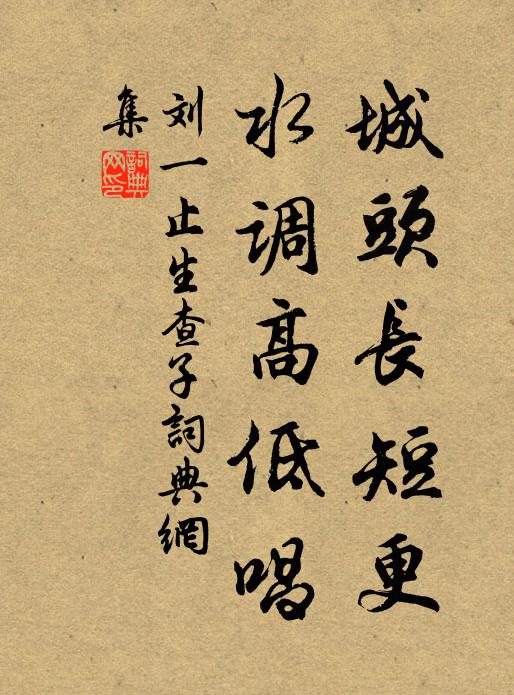 城頭長短更
水调高低唱
刘一止生查子詞典網
集
詞典網印